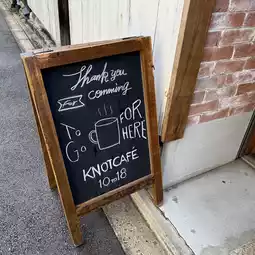 Thank you
comming
For
To Go
FOR HERE
KNOTCAFÉ
10 to 18